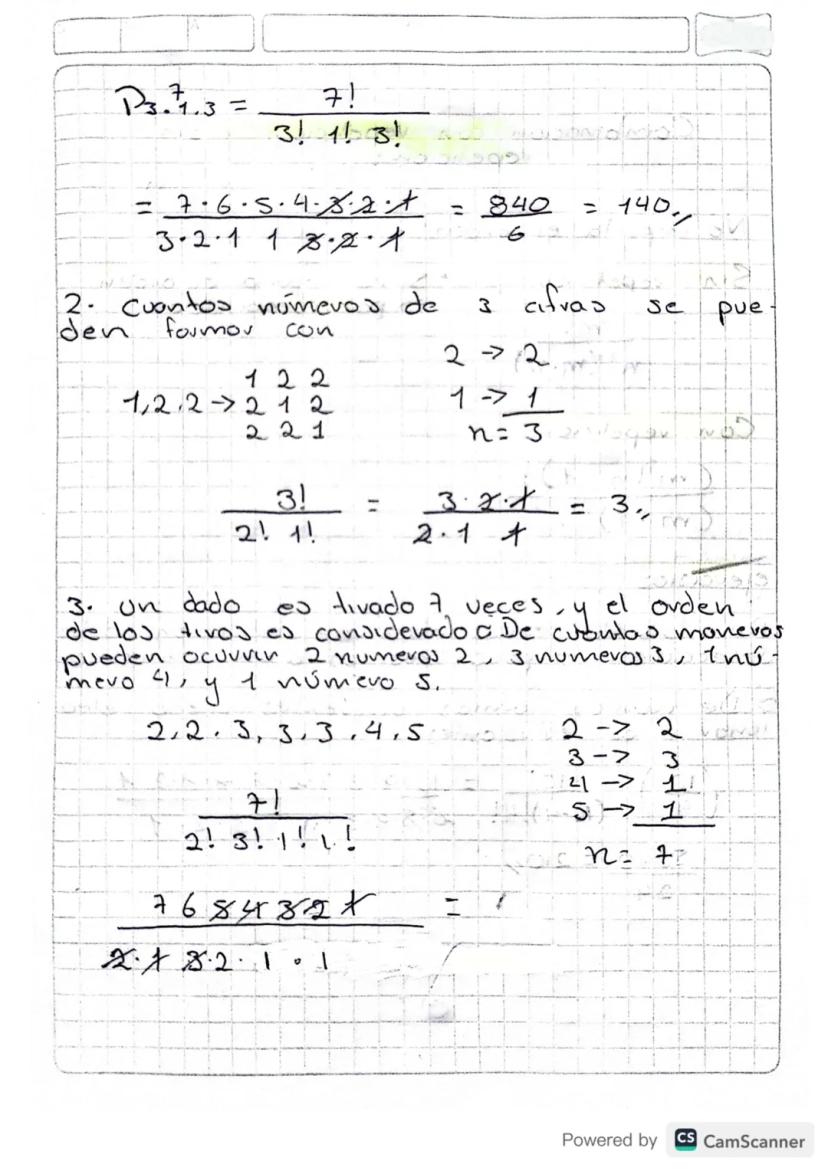 P 7 3.1.3 = 7! / 3! 1! 3!
= 7·6·5·4·3·2·1 / 3·2·1 1 3·2·1 = 840 / 6 = 140,,
2. Cuantos números de 3 cifras se pue-
den formar con
2 -> 2
1 2 2
1,2,2 -> 2 1 2
1 -> 1
2 2 1
n= 3
3! / 2! 1! = 3·2·1 / 2·1 1 = 3,,
3. un dado es tirado 7 veces, y el orden
de los tiros es considerado De cuantas maneras
pueden ocurrir 2 numeros 2, 3 numeros 3, 1 nú-
mero 4, y 1 número 5.
2,2,3,3,3,4,5
2 -> 2
3 -> 3
4 -> 1
5 -> 1
n= 7
7! / 2! 3! 1! 1!
7 6 5 4 3 2 1 / 2·1 3·2·1·1 =
Powered by CS CamScanner